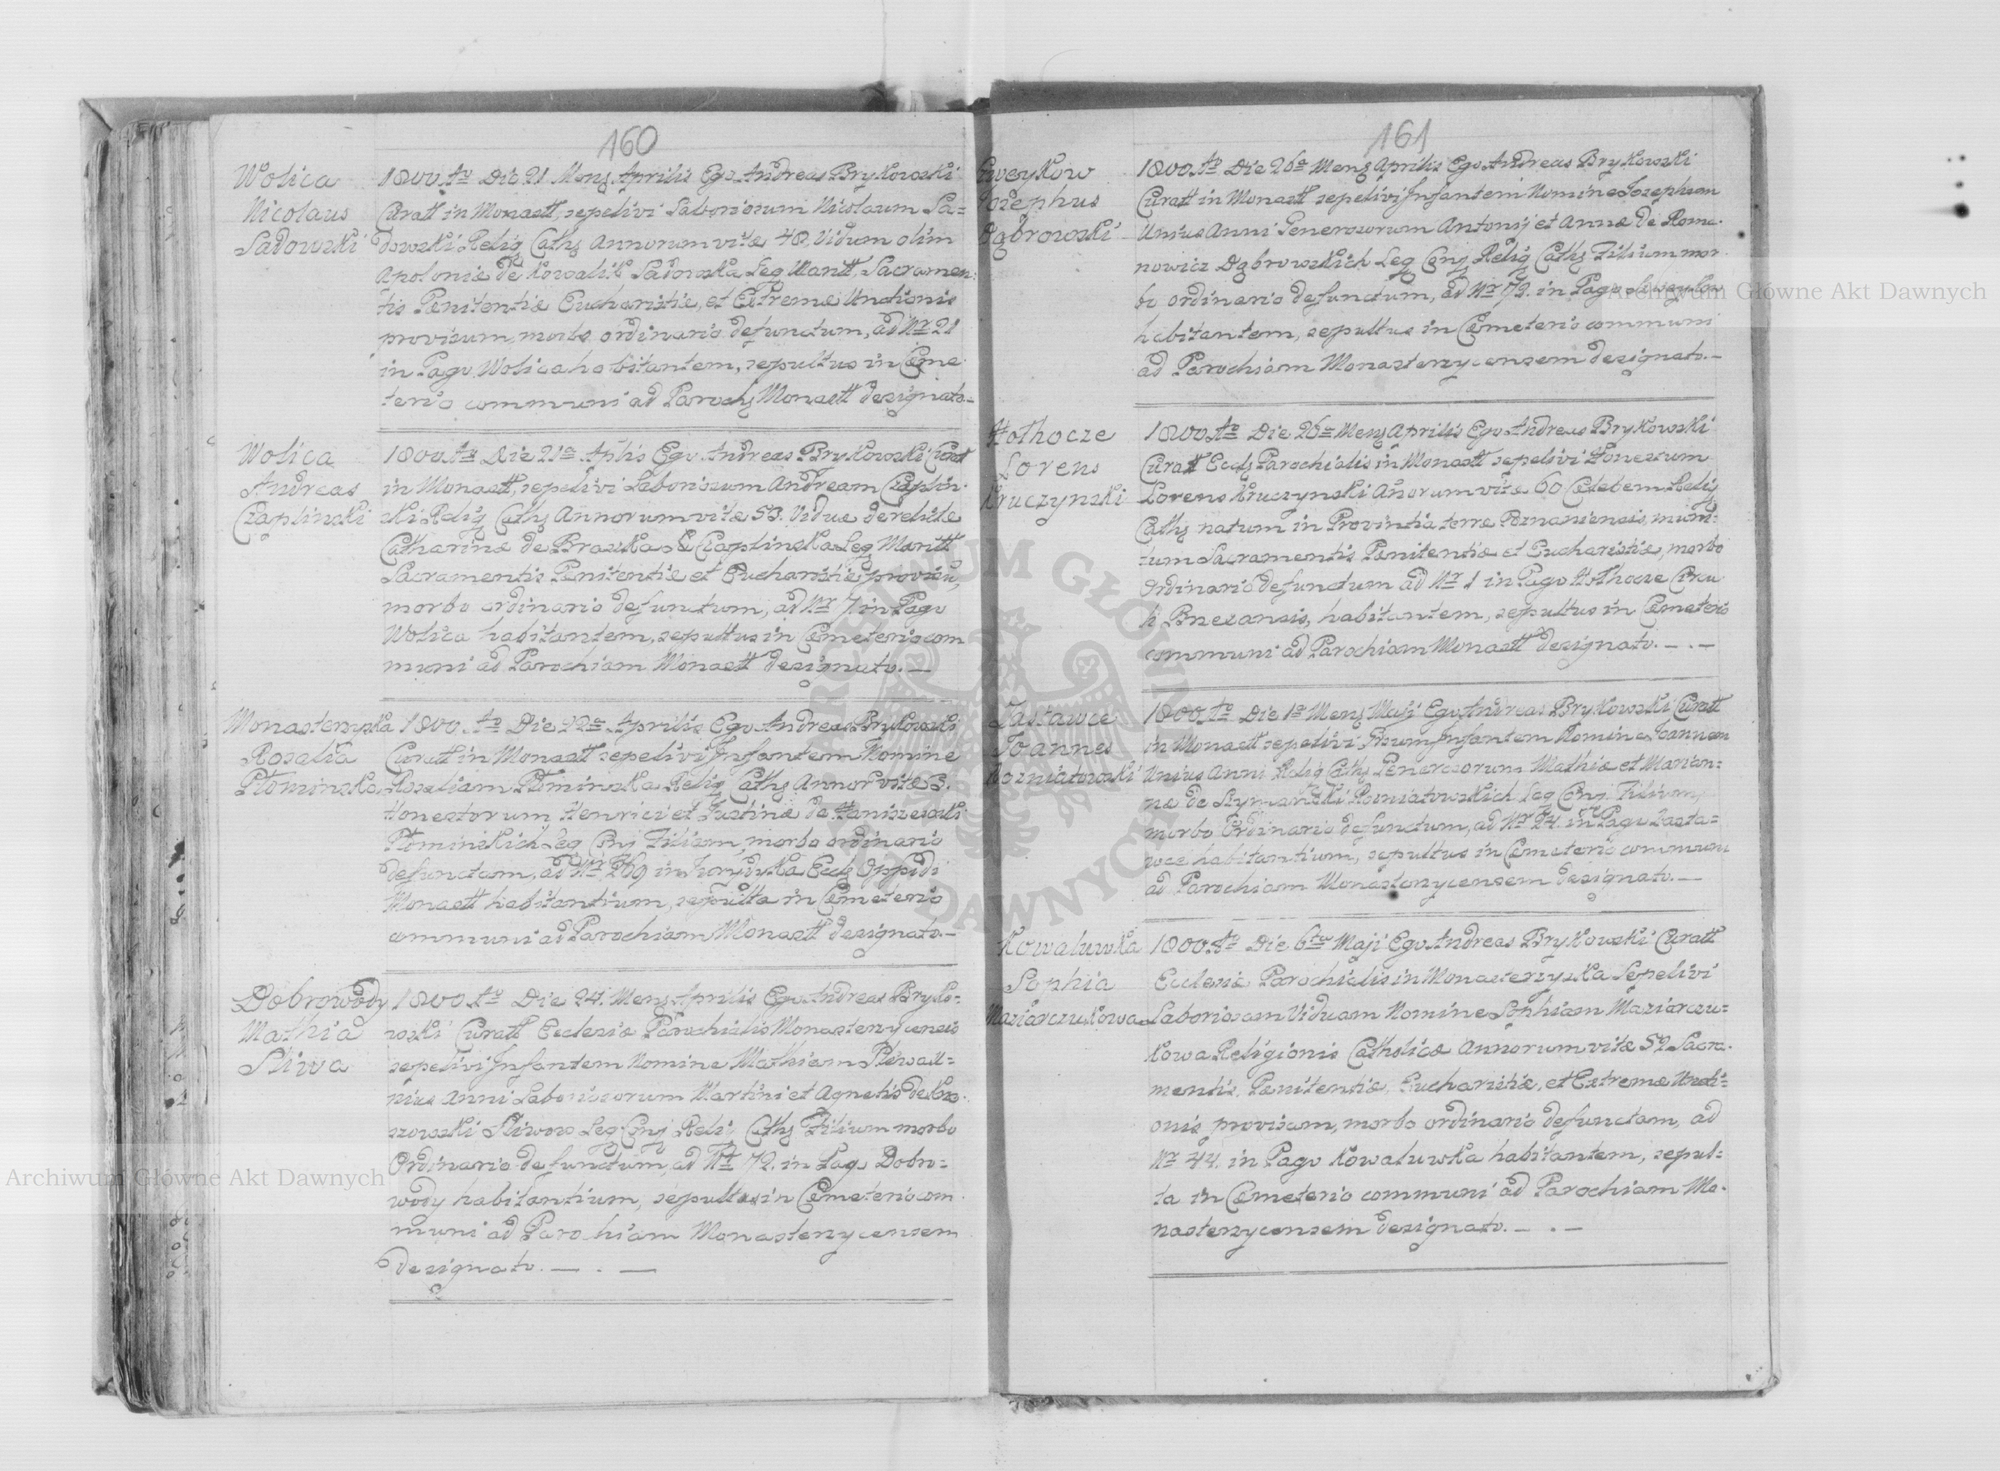 160
Wolica
Nicolaus
Sadowski
1800. Ao Die 21 Mens. Aprilis Ego Andreas Brykowski
Curatt in Monastt, sepelivi Laboriosum Nicolaum Sa=
dowski Relig Caths Annorum vitæ 48. Viduum olim
Apoloniæ de Kowalik Sadowska Leg Maritt. Sacramen:
tis Pænitentiæ Eucharistiæ, et Extremæ Unctionis
provisum, morbo ordinario defunctum, ad Nr 21
in Pago Wolica habitantem, sepultus in Cæme
terio communi ad Parochs Monastt designato.—
Wolica
Andreas
Czaplinski
1800. Ao Die 21a Aplis Ego Andreas Brykowski Curatt
in Monastt, sepelivi Laboriosum Andream Czaplin:
ski Relig Caths Annorum vitæ 53. Viduæ derelictæ
Catharinæ de Czaplinska Leg Maritt
Sacramentis Pænitentiæ et Eucharistiæ provisū,
morbo ordinario defunctum, ad Nr 7 in Pago
Wolica habitantem, sepultus in Cæmeterio com
muni ad Parochiam Monastt designato.—
Monasterzyska
Rosalia
Płominska
1800. Ao Die 22a Aprilis Ego Andreas Brykowski
Curatt in Monastt sepelivi Infantem Nomine
Rosaliam Płominska Relig Caths Annor vitæ 3.
Honestorum Henrici et Justinæ de
Płominskich Leg Conj Filiam, morbo ordinario
defunctam, ad Nr 269 in Eccls Oppidi
Monastt habitantium, sepulta in Cæmeterio
communi ad Parochiam Monastt designato.—
Dobrowody
Mathia
Sliwa
1800 Ao Die 24. Mens Aprilis Ego Andreas Bryko:
wski Curatt Ecclesiæ Parochialis Monasterzycensis
sepelivi Infantem Nomine Mathiam
nius Anni Laboriosorum Martini et Agnetis de
szowski Sliwow Leg Conj Relig Caths Filium morbo
Ordinario defunctum, ad Nr 72. in Pago Dobro=
wody habitantium, sepultus in Cæmeterio com
muni ad Parochiam Monasterzycensem
designato. — . —
161
Josephus
Dąbrowski
1800. Ao Die 26a Mens Aprilis Ego Andreas Brykowski
Curatt in Monastt sepelivi Infantem Nomine Josephum
Unius Anni Generosorum Antonij et Annæ de Roma:
nowicz Dąbrowskich Leg Conj Relig Caths Filium mor:
bo ordinario defunctum, ad Nr 79. in Pago
habitantem, sepultus in Cæmeterio communi
ad Parochiam Monasterzycensem designato.—
Hołhocze
Lorens
Kruczynski
1800. Ao Die 26ta Mens Aprilis Ego Andreas Brykowski
Curatt Eccls Parochialis in Monastt sepelivi Honestum
Lorens Kruczynski Anorum vitæ 60 Cælebem Relig
Caths natum in Provintia terræ Poznaniensis, muni:
tum Sacramentis Pænitentiæ et Eucharistiæ, morbo
Ordinario defunctum ad Nr 1 in Pago Hołhocze Circu
li Brzezansis, habitantem, sepultus in Cæmeterio
communi ad Parochiam Monastt designato. — . —
Sastawce
Joannes
Rozniatowski
1800. Ao Die 1a Mens Maji Ego Andreas Brykowski Curatt
in Monastt sepelivi Infantem Nomine Joannem
Unius Anni Relig Caths Generosorum Mathiæ et Marian:
næ de Rozniatowskich Leg Conj Filium,
morbo Ordinario defunctum, ad Nr 24. in Pago Sasta=
wce habitantium, sepultus in Cæmeterio communi
ad Parochiam Monasterzycensem designato. —
Kowaluwka
Sophia
Maziarczukowa
1800. Ao Die 6ta Maji Ego Andreas Brykowski Curatt
Ecclesiæ Parochialis in Monasterzyska Sepelivi
Laboriosam Viduam Nomine Sophiam Maziarczu=
kowa Religionis Catholicæ Annorum vitæ 52 Sacra:
mentis, Pænitentiæ, Eucharistiæ, et Extremæ Uncti=
onis provisam, morbo ordinario defunctam, ad
Nr 44. in Pago Kowaluwka habitantem, sepul=
ta in Cæmeterio communi ad Parochiam Mo:
nasterzycensem designato. — . —
Archiwum Główne Akt Dawnych
Archiwum Główne Akt Dawnych
ARCHIWUM GŁÓWNE AKT DAWNYCH